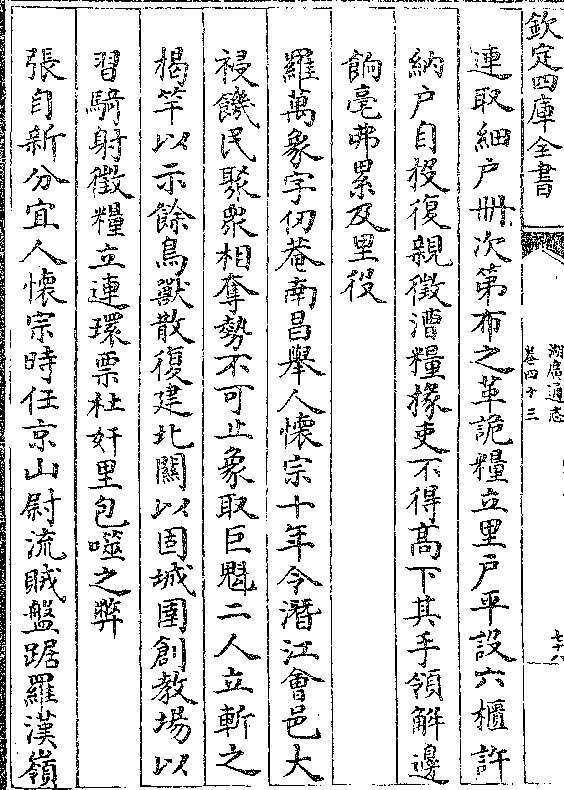 欽定四庫全書
湖廣通志
卷四十三
七十八
連取細户冊次第布之革詭糧立里户平設六櫃許
納户自投復親徵漕糧掾吏不得高下其手領解邊
餉毫弗累及里役
羅萬象字仞菴南昌舉人懷宗十年令潛江會邑大
祲饑民聚衆相奪勢不可止象取巨魁二人立斬之
楬竿以示餘鳥獸散復建北關以固城圉創教場以
習騎射徵糧立連環票杜奸里包噬之弊
張自新分宜人懷宗時任京山尉流賊盤踞羅漢嶺